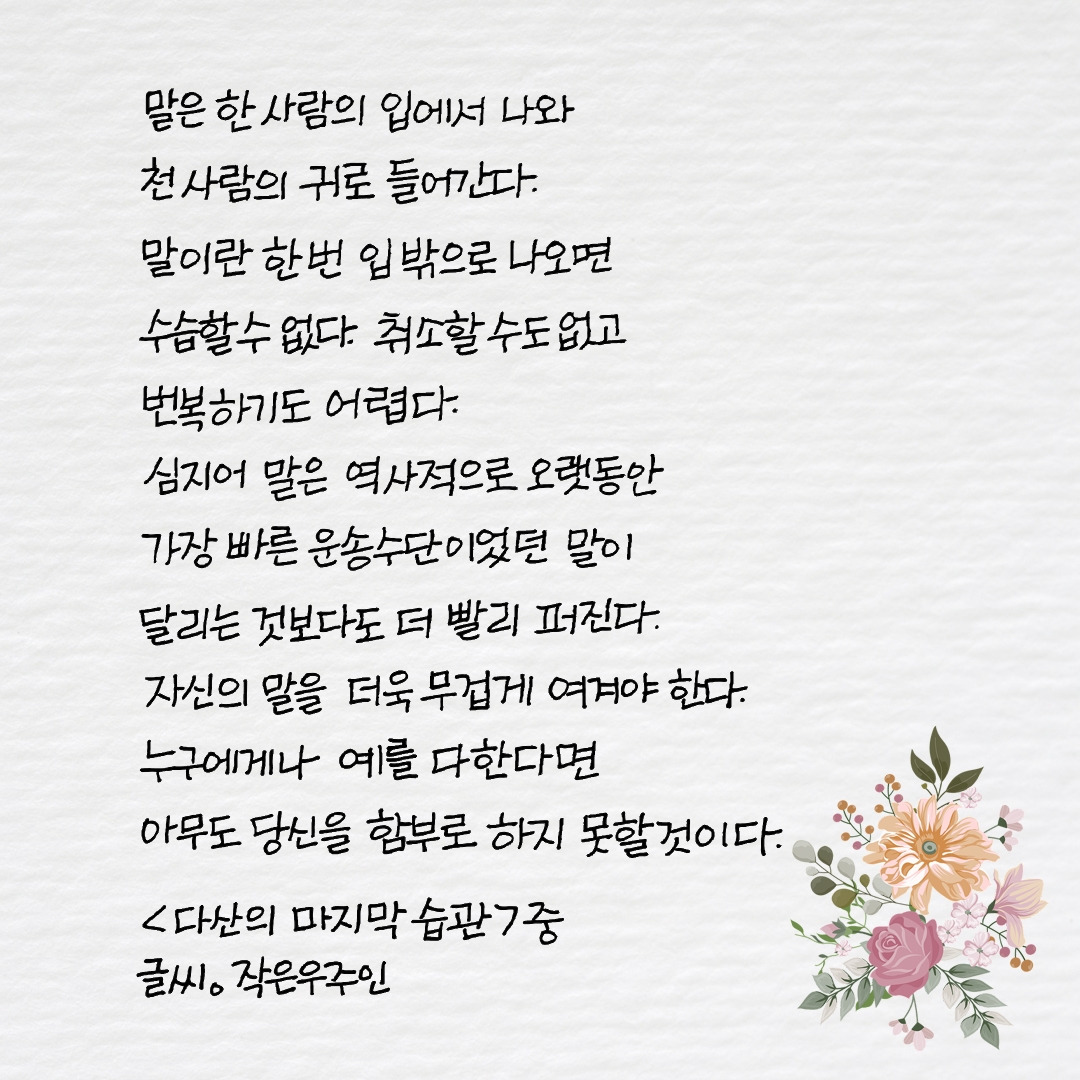 말은 한 사람의 입에서 나와
천 사람의 귀로 들어간다.
말이란 한번 입 밖으로 나오면
수습할 수 없다. 취소할 수도 없고
번복하기도 어렵다.
심지어 말은 역사적으로 오랫동안
가장 빠른 운송수단이었던 말이
달리는 것보다도 더 빨리 퍼진다.
자신의 말을 더욱 무겁게 여겨야 한다.
누구에게나 예를 다한다면
아무도 당신을 함부로 하지 못할것이다.
<다산의 마지막 습관> 중
글씨。작은우주인